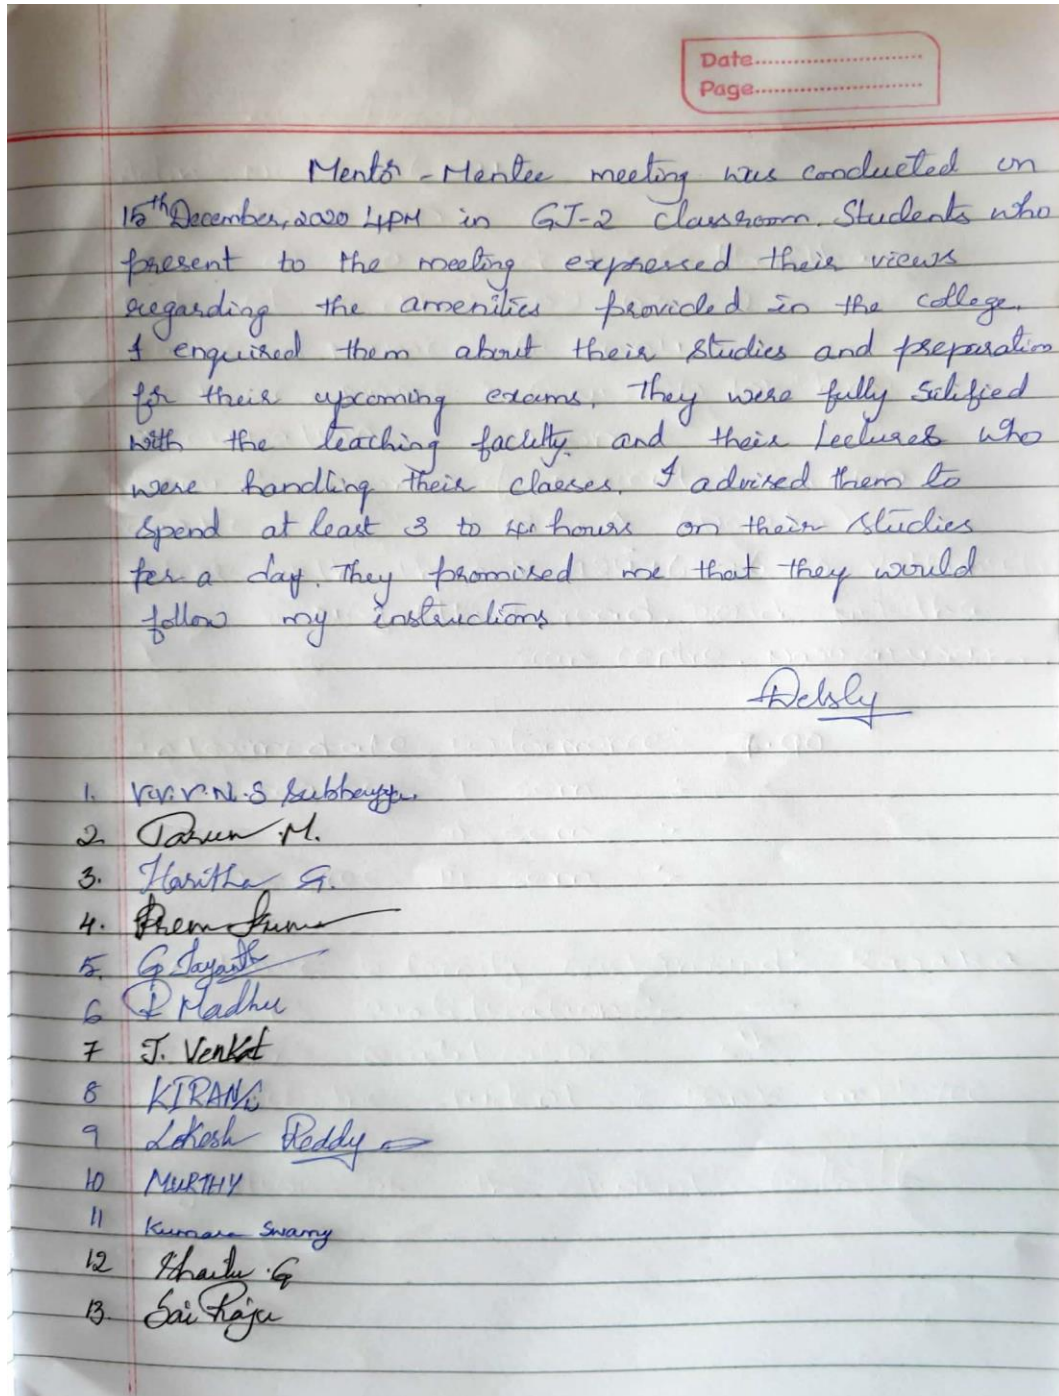 Date
Page
Mentor - Mentee meeting was conducted on
15th December, 2020 4PM in GJ-2 classroom. Students who
present to the meeting expressed their views
regarding the amenities provided in the college.
I enquired them about their studies and preparation
for their upcoming exams. They were fully
with the teaching faculty. and their Lectures who
were handling their classes. I advised them to
spend at least 3 to hours on their studies
per a day. They promised me that they would
follow my instructions
1. V.V.V.N.S
2. Tarun .M.
3. Haritha G.
4. Prem Kumar
5. G Jayanth
6 Madhu
7 J. Venkat
8
9 Lokesh Reddy
10 MURTHY
11 Kumara Swamy
12 .G
13. Sai Raju